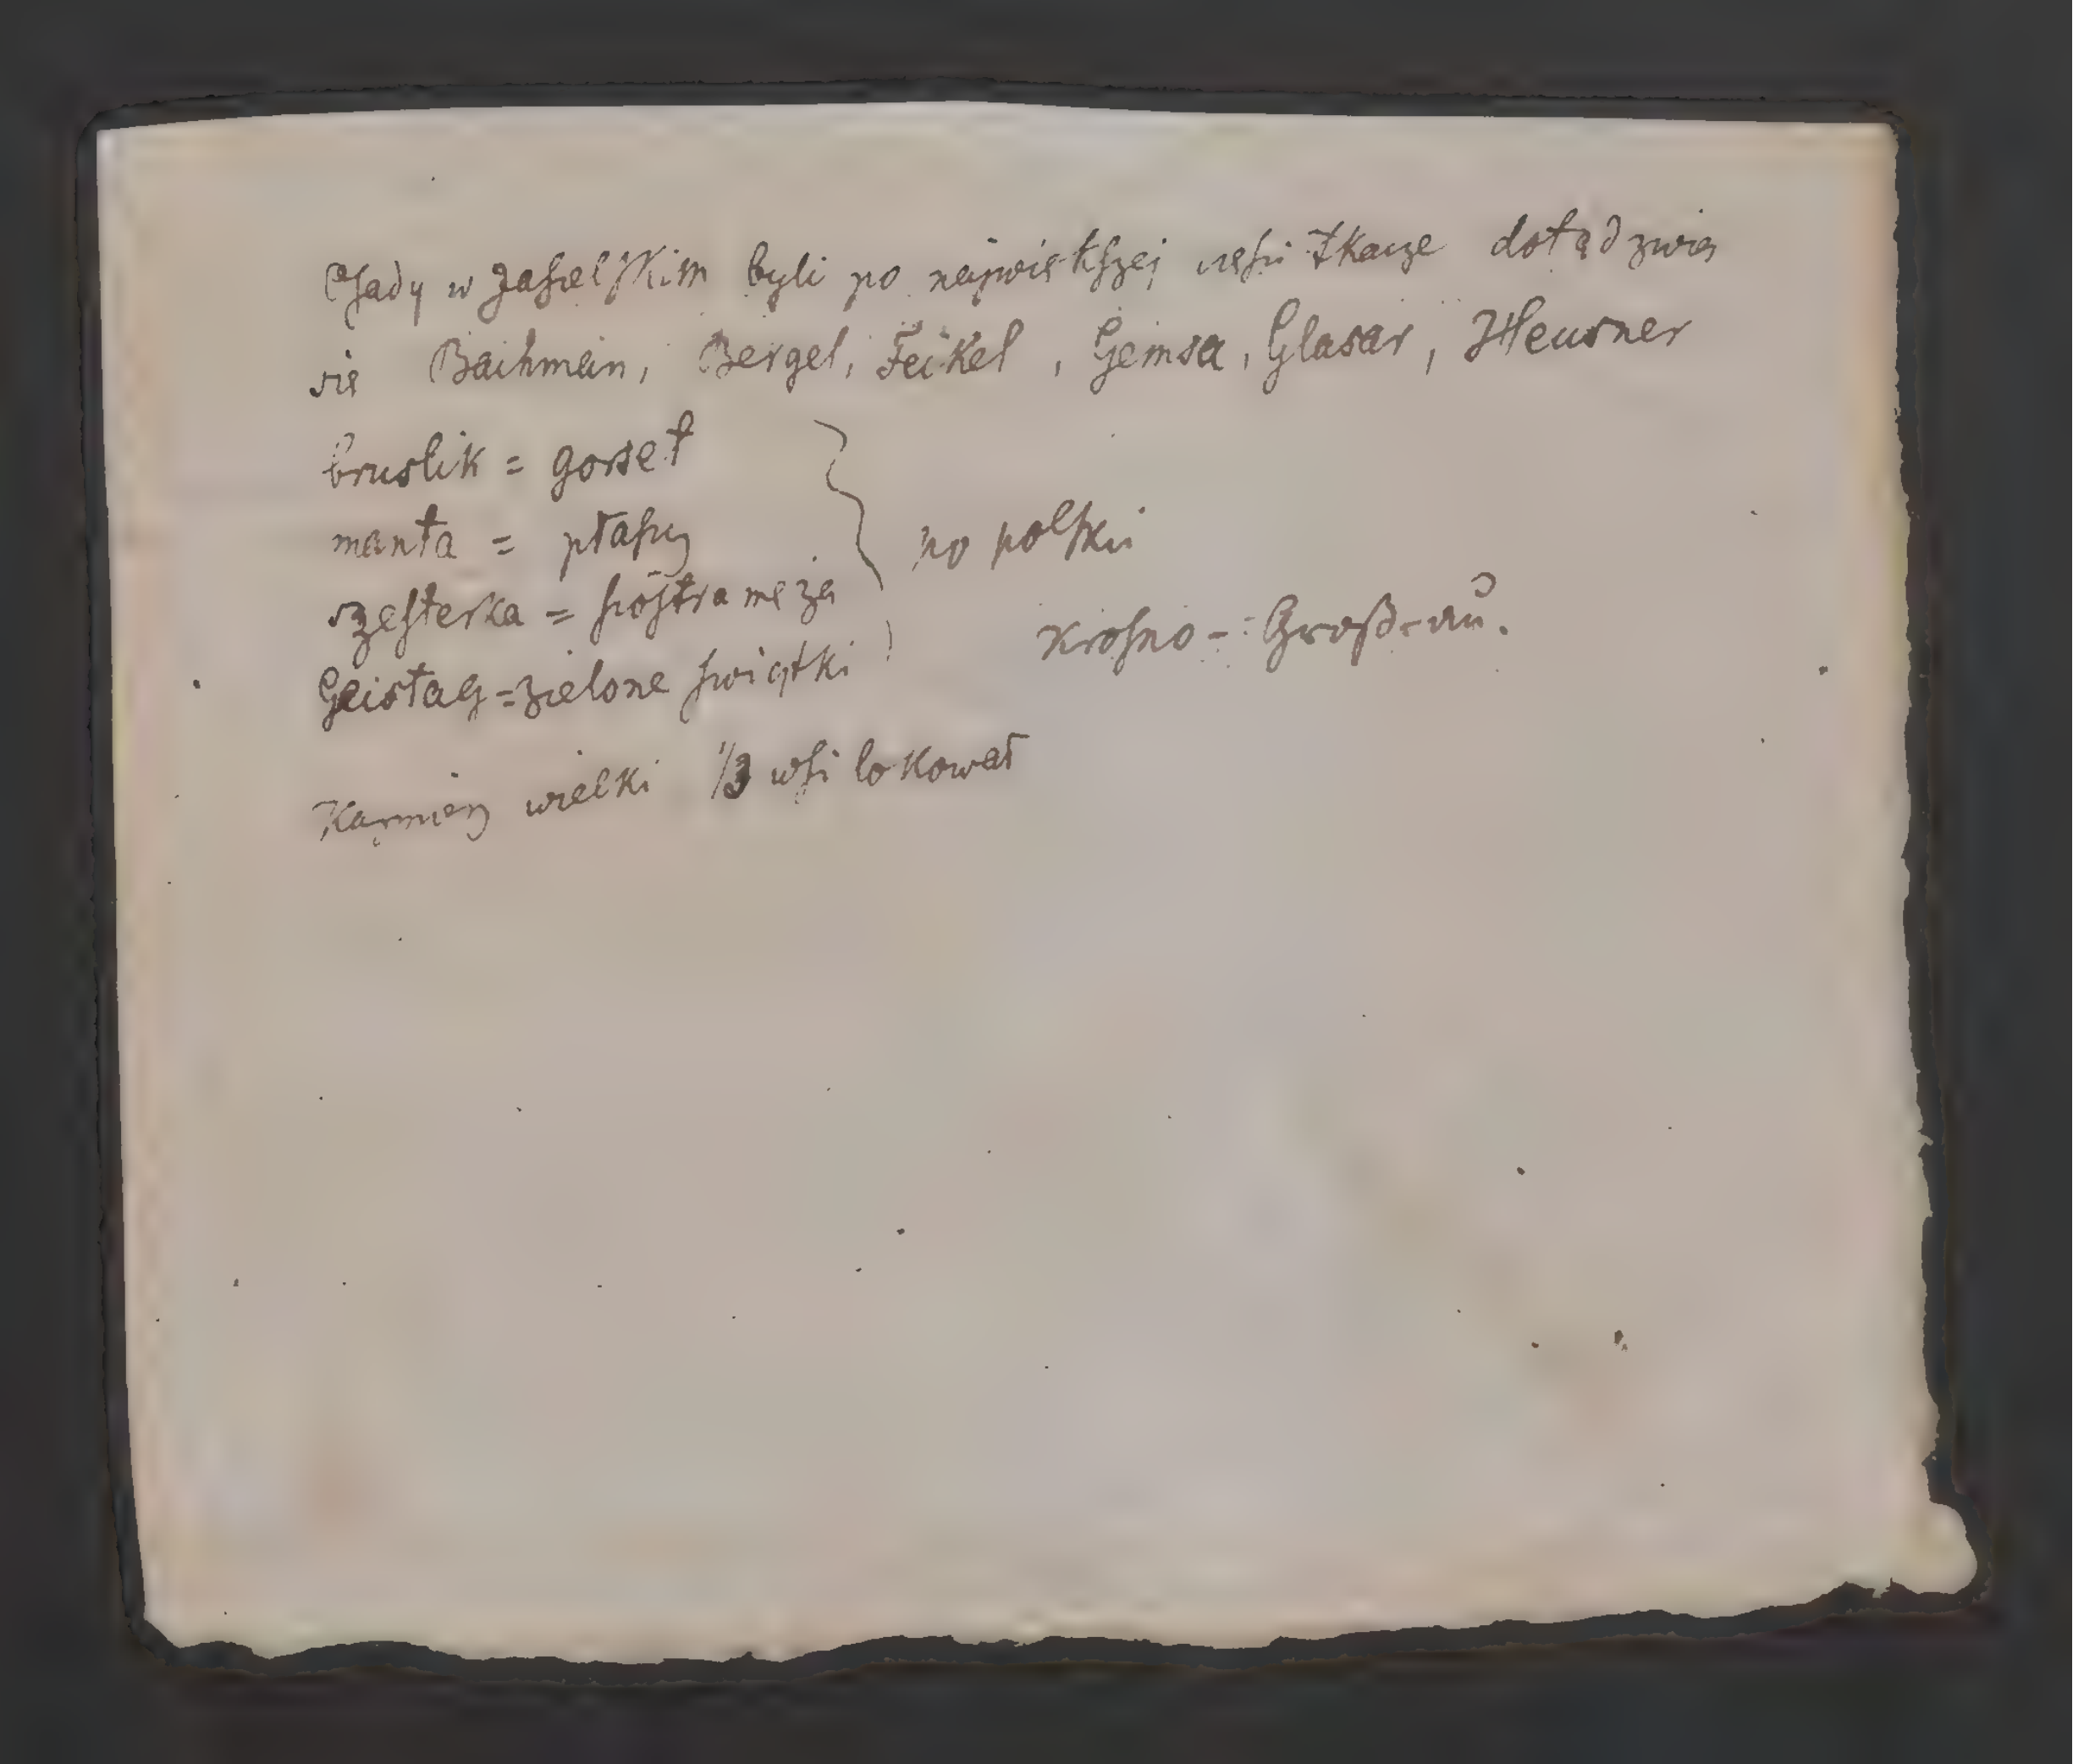 Osady w Jasielskim byli po największej części tkacze dotąd zwią
się Bachman, Bergel, Feikel, Gemsa, Glasar, Heusner
bruslik = gorset
manta = płaszcz
szesterka = siostra męża } po polsku
Geistag = zielone świątki
Krosno = Großau.
Kazmierz wielki 1/3 wsi lokował